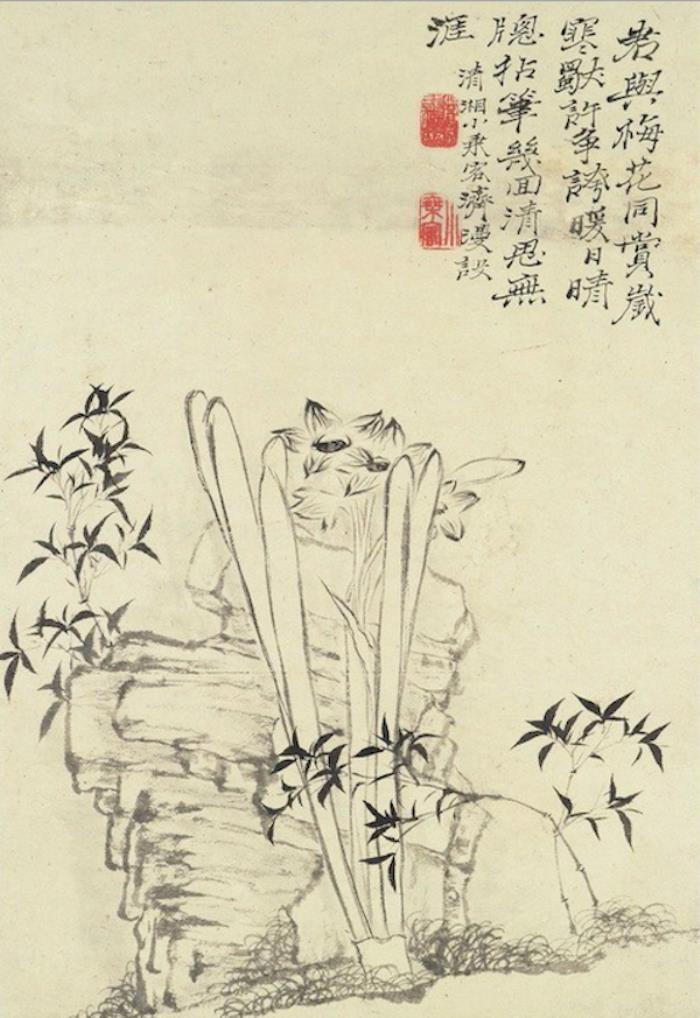 君與梅花同賞歲
寒默許爭誇暖日晴
牕拈筆幾回清思無
涯
清湘小乘客濟漫設
小乘客